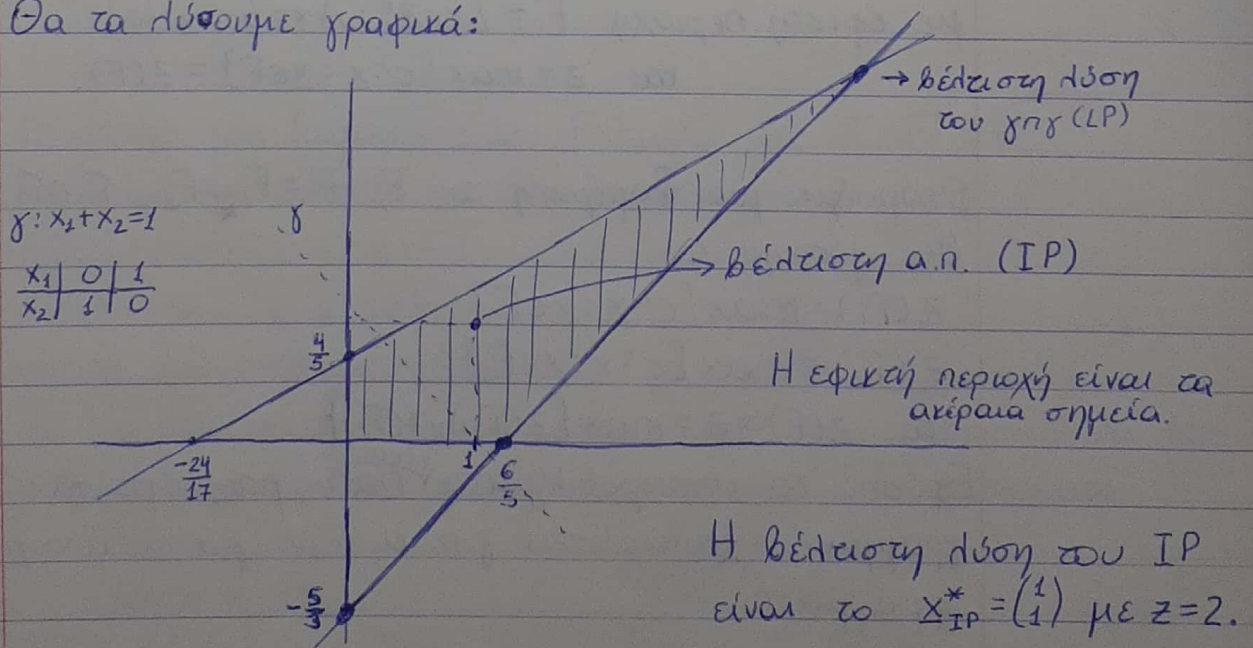 Θα τα λύσουμε γραφικά:
→ βέλτιστη λύση
του γπγ (LP)
γ: x₁+x₂=1
γ
x₁ | 0 | 1
x₂ | 1 | 0
→ βέλτιστη α.π. (IP)
4/5
Η εφικτή περιοχή είναι τα
ακέραια σημεία.
-24/17
1
6/5
Η βέλτιστη λύση του IP
-5/3
είναι το x*_IP = (1 1) με z=2.